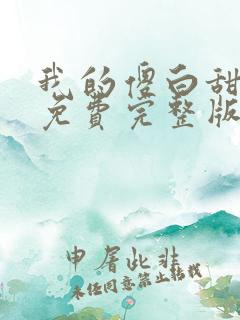 我的傻白甜
免费完整版
申屠此非
未经同意禁止转载